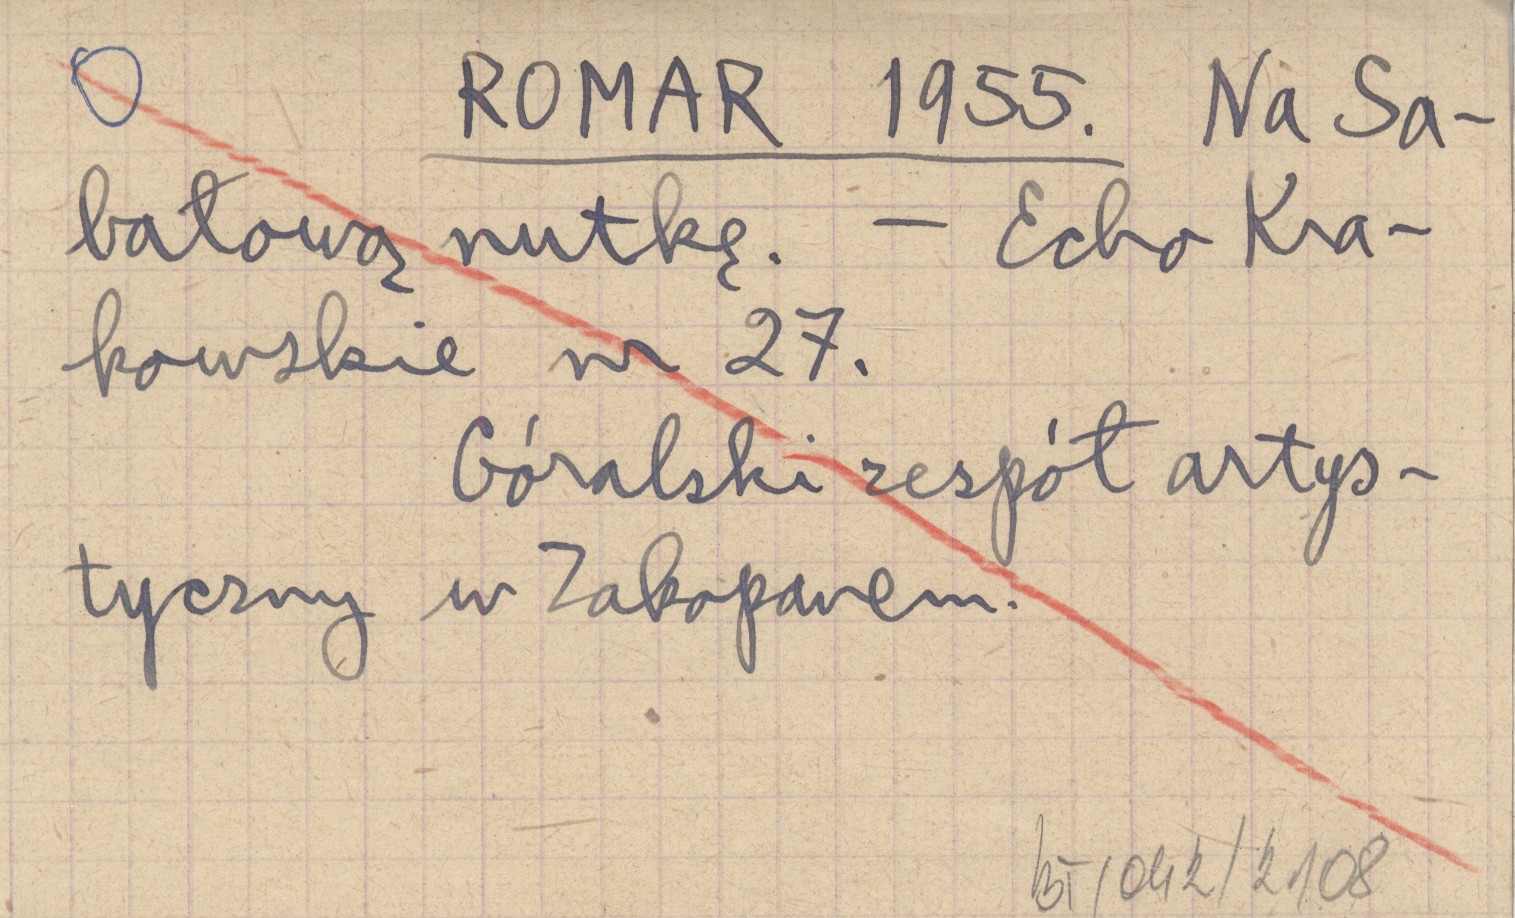 ROMAR 1955. Na Sa-
bałową nutkę. — Echo Kra-
kowskie nr 27.
Góralski zespół artys-
tyczny w Zakopanem.
BT/042/2108